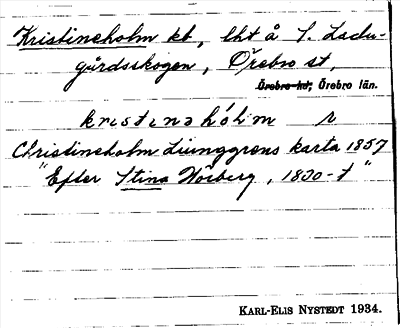 Kristineholm kb, lht å S. Ladu-
gårdsskogen, Örebro st,
Örebro hd, Örebro län.
kristinəhólm r
Christineholm Ljunggrens karta 1857
"Efter Stina Norberg, 1830-t"
KARL-ELIS NYSTEDT 1934.